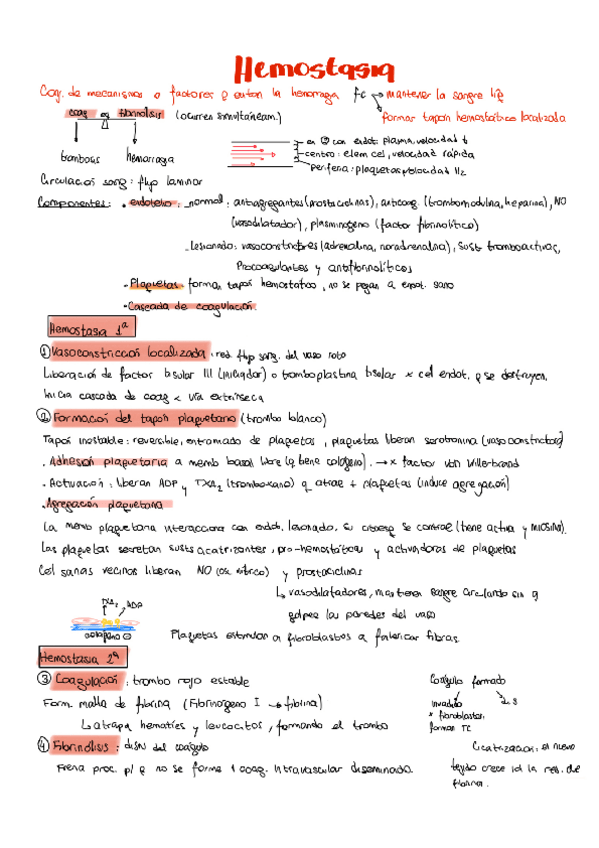 Hemostasia
Conj. de mecanismos o factores q evitan la hemorragia fc → mantener la sangre líq
formar tapón hemostático localizada
coag eq fibrinolisis (ocurren simultáneam.)
en con endot: plasma, velocidad ↓
centro: elem cel, velocidad + rápida
periferia: plaquetas, velocidad
trombosis hemorragia
Circulación sang: flujo laminar
Componentes: • endotelio: - normal: antiagregantes (prostaciclinas), anticoag. (trombomodulina, heparina), NO
(vasodilatador), plasminogeno (factor fibrinolítico)
- Lesionado: vasoconstrictores (adrenalina, noradrenalina), susts tromboactivas,
Procoagulantes y antifibrinolíticos
• Plaquetas: forman tapón hemostático, no se pegan a endot. sano
• Cascada de coagulación.
Hemostasia 1ª
① Vasoconstricción localizada: red. flujo sang. del vaso roto
Liberación de factor tisular III (iniciador) o tromboplastina tisular x cel endot. q se destruyen.
Inicia cascada de coag < vía extrínseca
② Formación del tapón plaquetario (trombo blanco)
Tapón inestable: reversible, entramado de plaquetas, plaquetas liberan serotonina (vasoconstrictora)
• Adhesión plaquetaria a memb basal libre (q tiene colágeno). → x factor von Willerbrand
• Activación: liberan ADP y TXA2 (tromboxano) q atrae + plaquetas (induce agregación)
• Agregación plaquetaria
La memb plaquetaria interacciona con endot. lesionado, su citoesq se contrae (tiene actina y miosina).
Las plaquetas secretan susts cicatrizantes, pro-hemostáticas y activadoras de plaquetas
Cél sanas vecinas liberan NO (ox. nítrico) y prostaciclinas
↳ vasodilatadores, mantienen sangre circulando sin q
golpee las paredes del vaso
TXA2 ADP
colágeno
Plaquetas estimulan a fibroblastos a fabricar fibras.
Hemostasia 2ª
③ Coagulación: trombo rojo estable
Coágulo formado
Form. malla de fibrina (Fibrinógeno I → fibrina)
invadido
x fibroblastos:
forman TC
↳ atrapa hematíes y leucocitos, formando el trombo
④ Fibrinólisis: disn del coágulo
Cicatrización: el nuevo
Frena proc. p/ q no se forme 1 coag. intravascular diseminado.
tejido crece la res. de
fibrina.